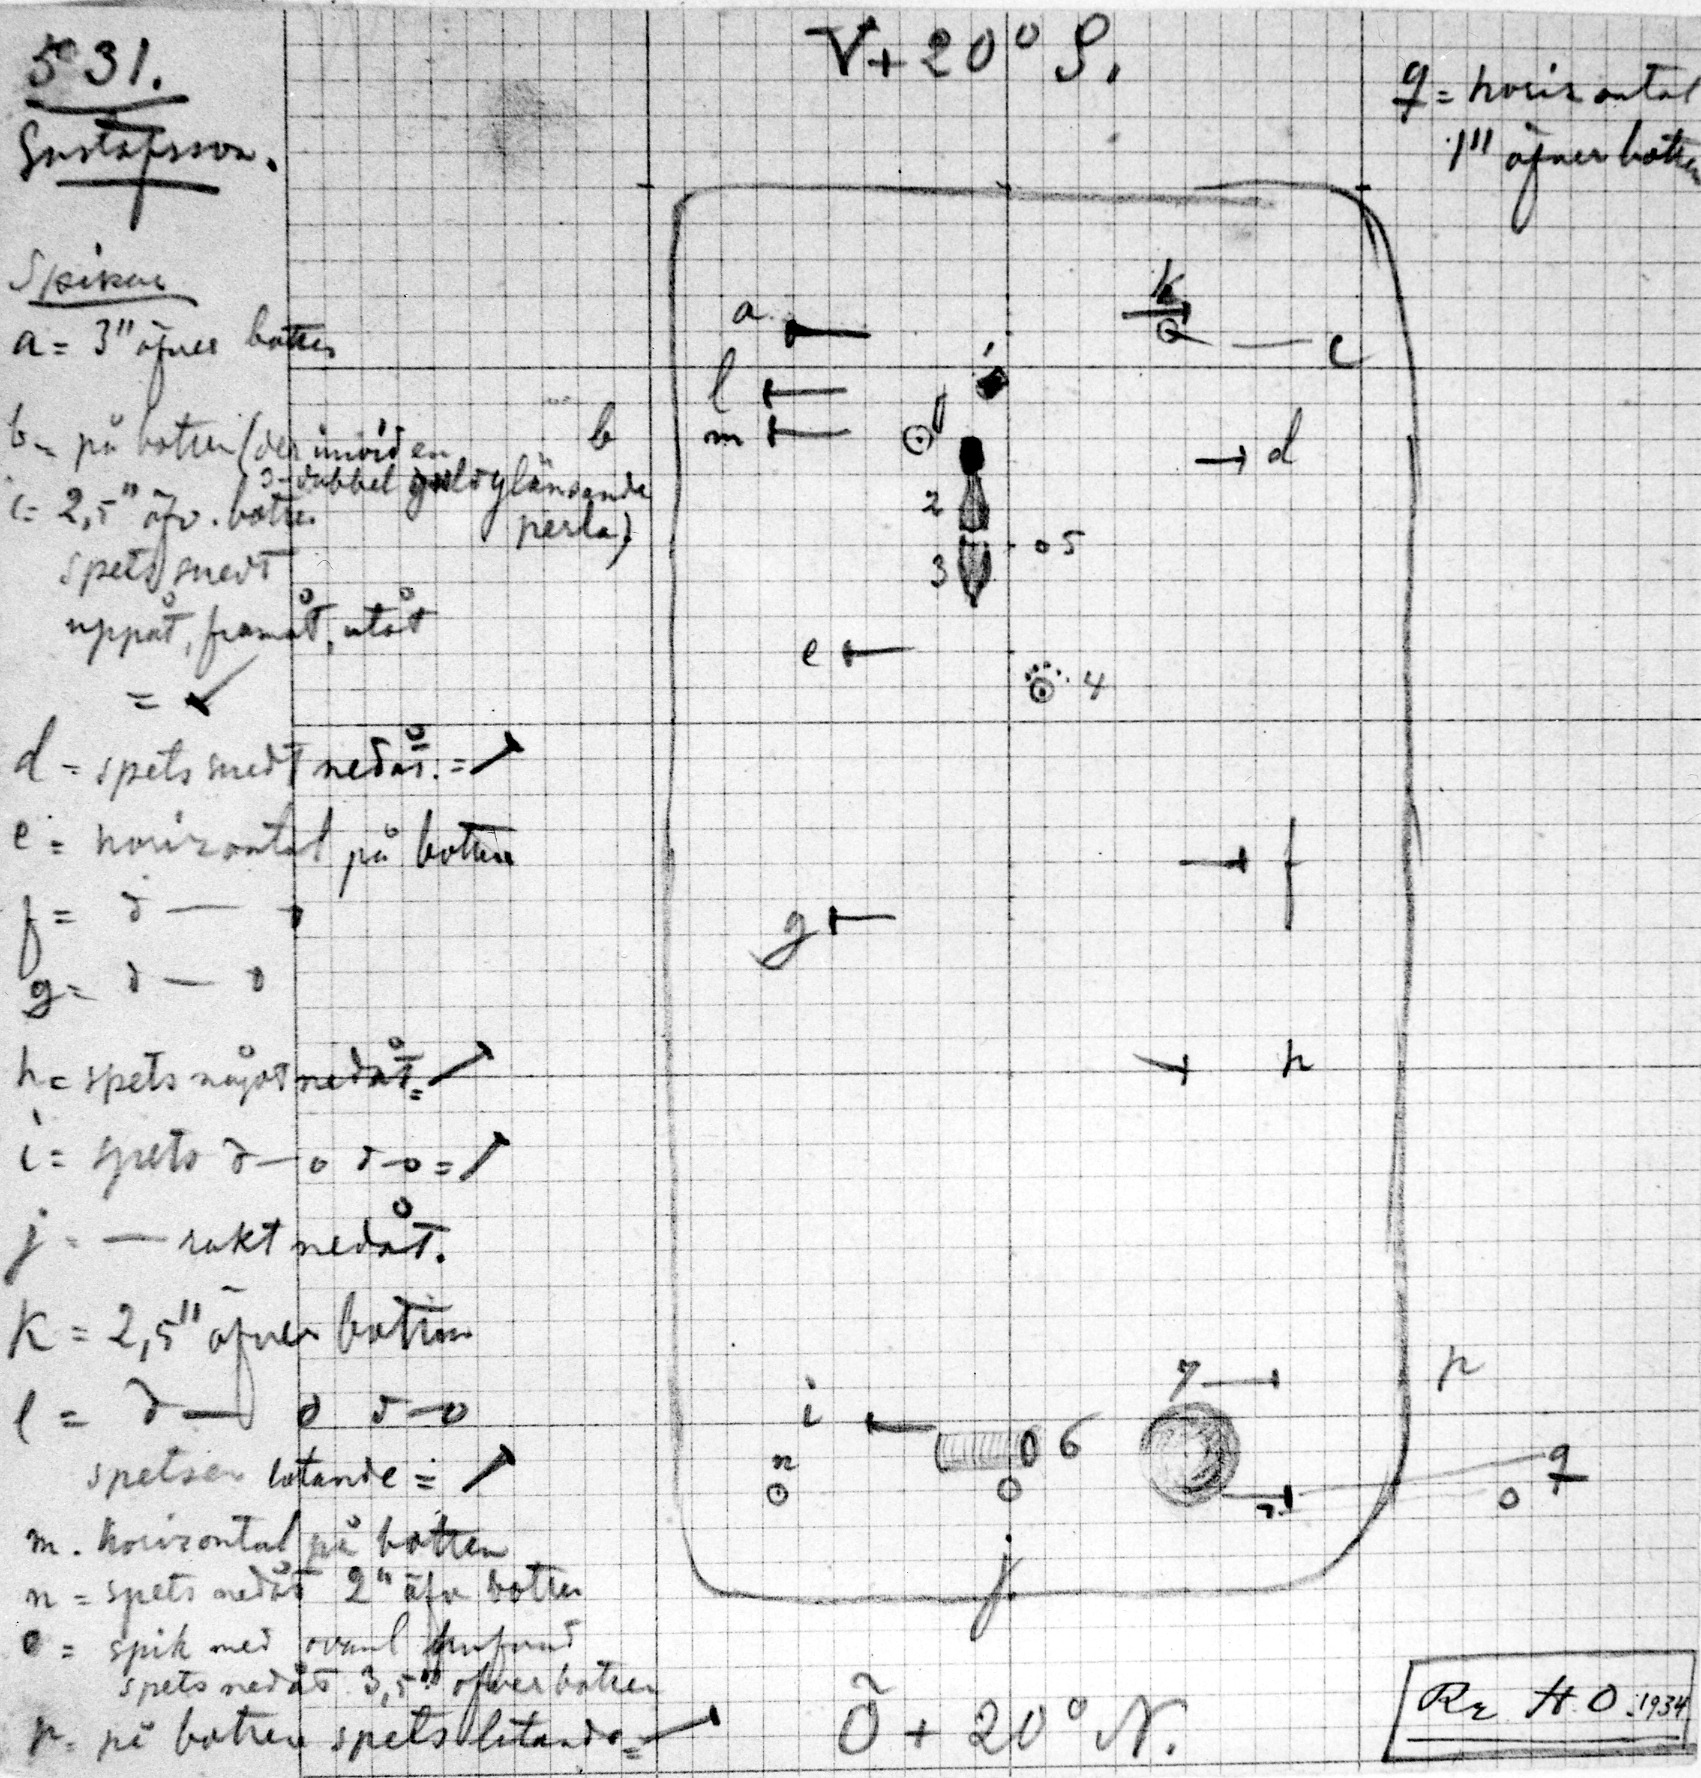 531.
Gustafsson.
V+20° S.
q = horizontal
1''' öfver botten
Spikar
a = 3" öfver botten
b = på botten (der invid en
3-dubbel guldglänsande
perla)
c = 2,5" öfv. botten
spets snedt
uppåt, framåt, utåt
=
d = spets snedt nedåt. =
e = horizontal på botten
f = d — o
g = d — o
h = spets något nedåt =
i = spets d—o d—o =
j = — rakt nedåt.
k = 2,5" öfver botten
l = d — o d—o
spetsen lutande =
m. horizontal på botten
n = spets nedåt 2" öfv botten
o = spik med ovanl hufvud
spets nedåt 3,5" öfver botten
p = på botten spets lutande =
a
k
c
l
1
b
m
d
2
5
3
e
4
f
g
h
7
p
i
6
n
q
o
j
Ö + 20° N.
R H.O. 1934